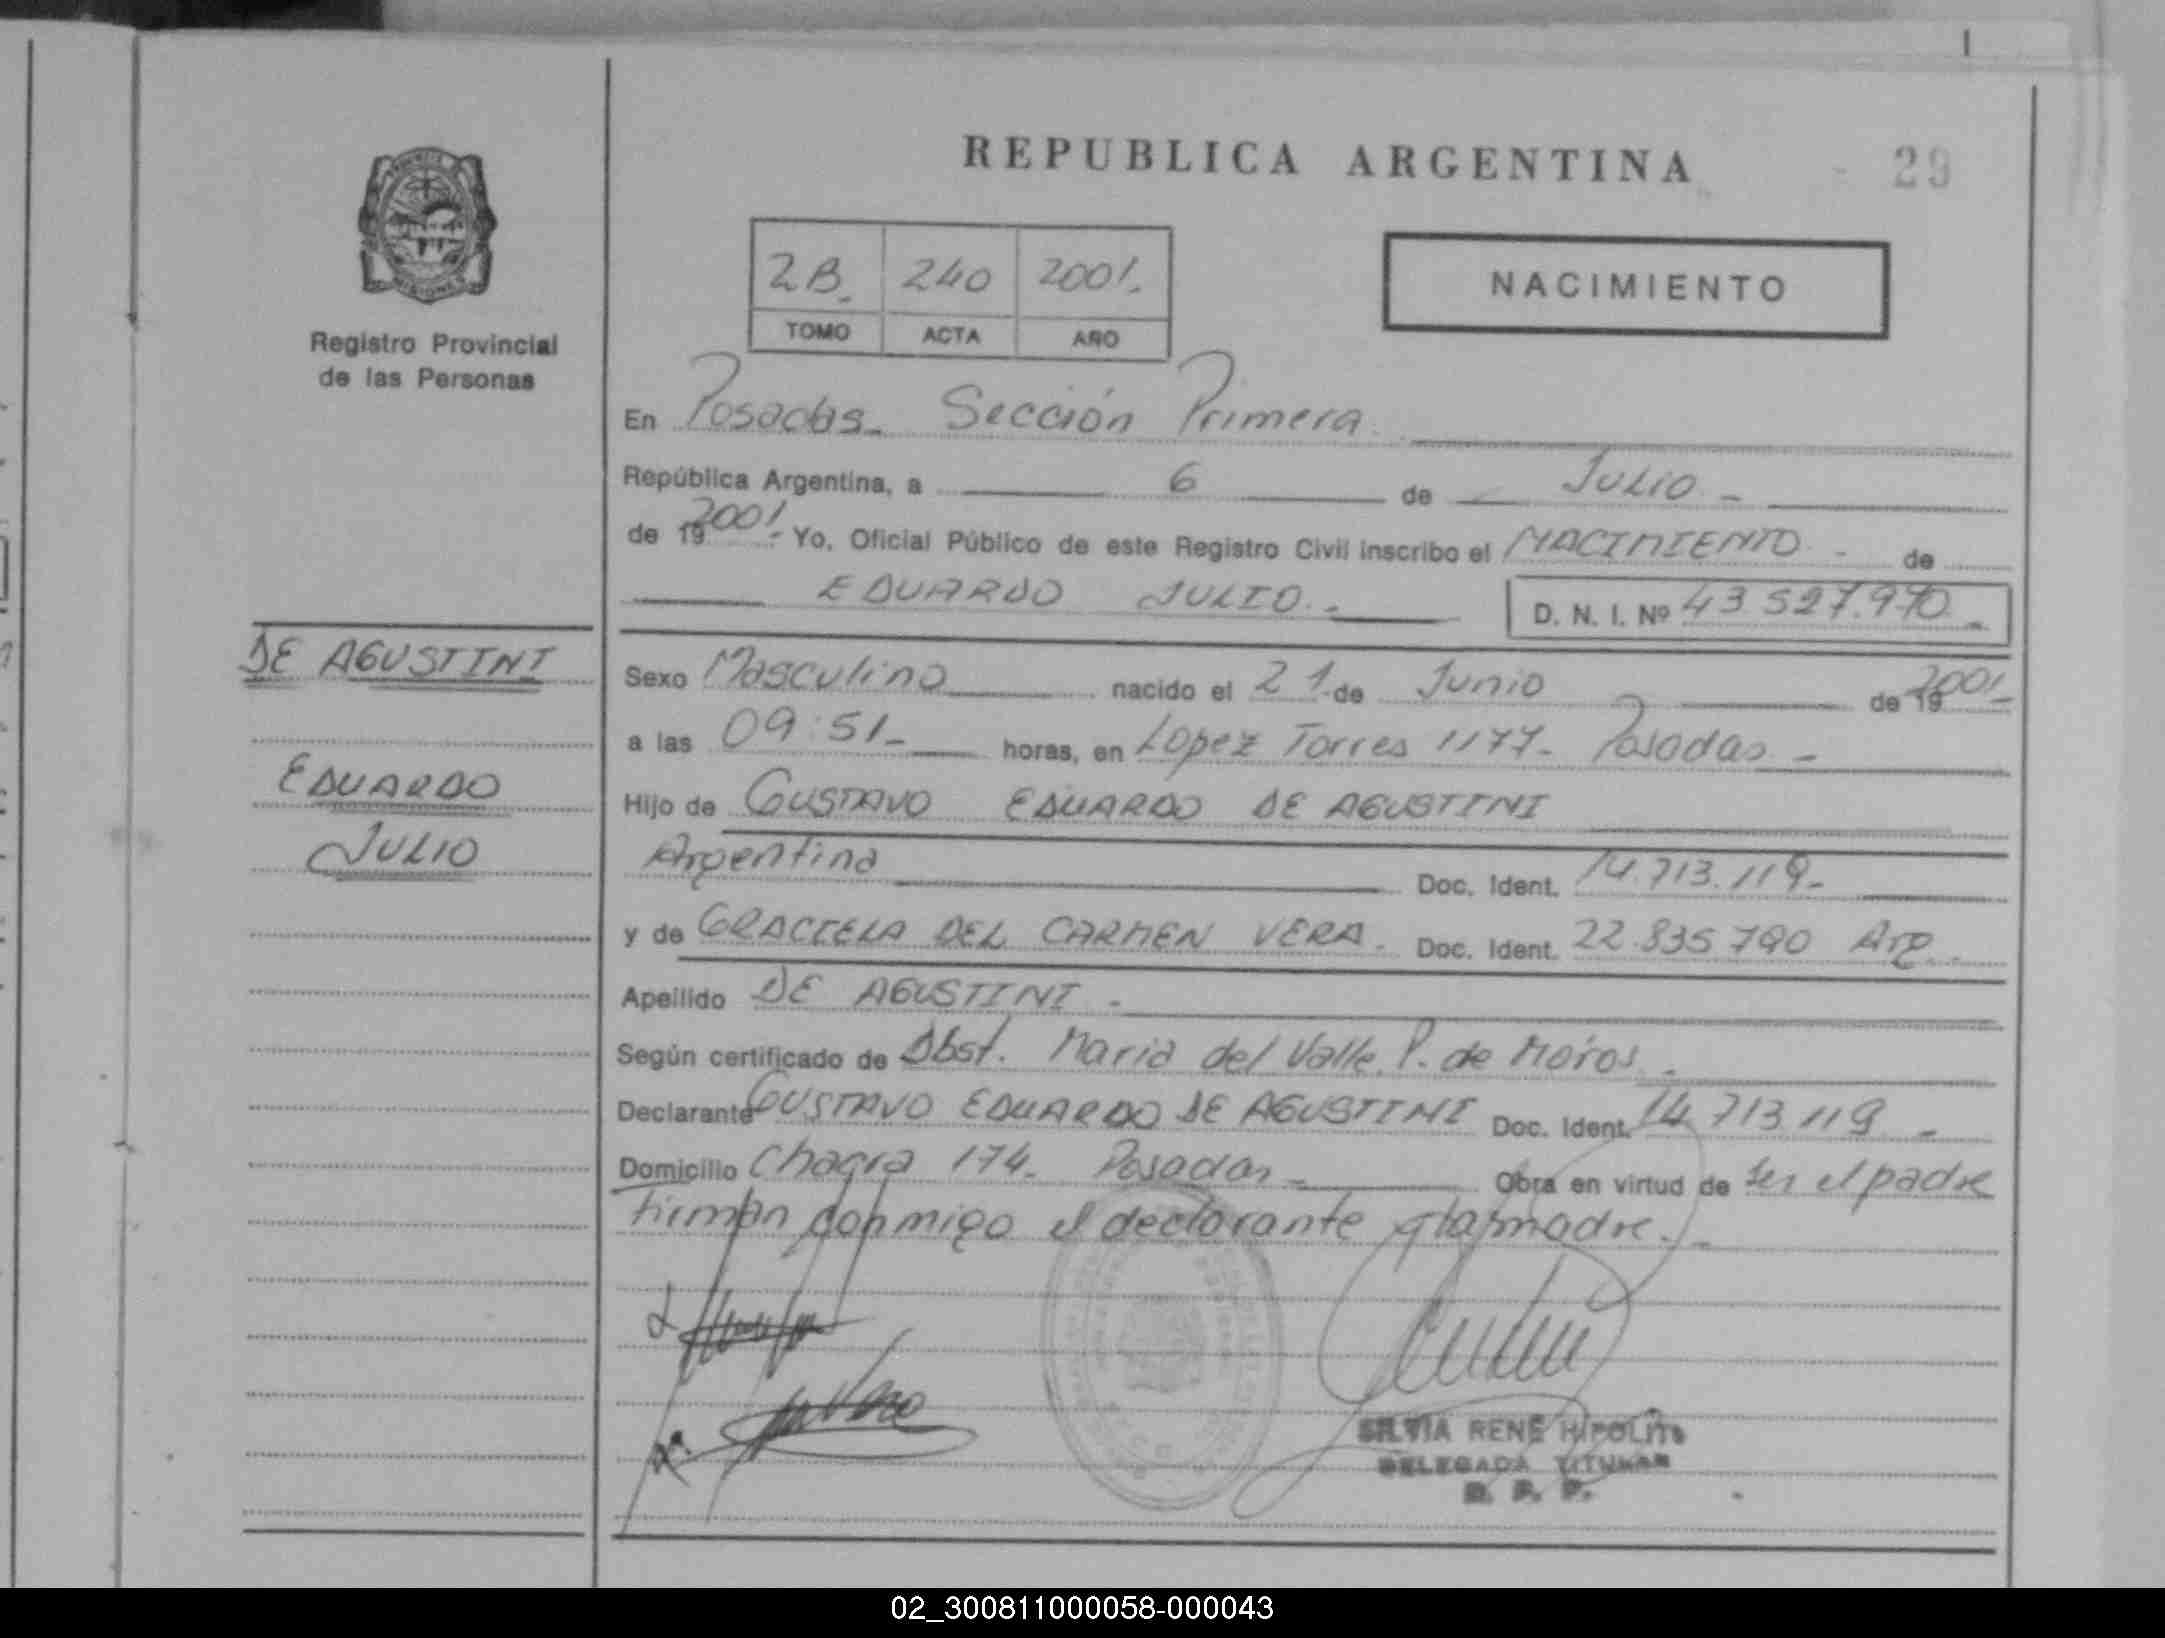 REPUBLICA ARGENTINA
29
2B. 240 2001.
TOMO ACTA AÑO
NACIMIENTO
MISIONES
Registro Provincial
de las Personas
En Posadas. Sección Primera.
República Argentina, a 6 de Julio
de 19 2001. Yo, Oficial Público de este Registro Civil inscribo el NACIMIENTO de
EDUARDO JULIO.
D. N. I. Nº 43 527.970
DE AGUSTINI
EDUARDO
JULIO
Sexo Masculino nacido el 21 de Junio de 19 2001
a las 09:51 horas, en Lopez Torres 1177 - Posadas
Hijo de GUSTAVO EDUARDO DE AGUSTINI
Argentina Doc. Ident. 14.713.119
y de GRACIELA DEL CARMEN VERA. Doc. Ident. 22.835 790 Arg.
Apellido DE AGUSTINI
Según certificado de Obst. Maria del Valle P. de Moros
Declarante GUSTAVO EDUARDO DE AGUSTINI Doc. Ident. 14 713 119
Domicilio Chacra 174. Posadas Obra en virtud de ser el padre
firman conmigo el declarante y la madre.
SILVIA RENE HIPOLITO
DELEGADA TITULAR
R. P. P.
02_300811000058-000043